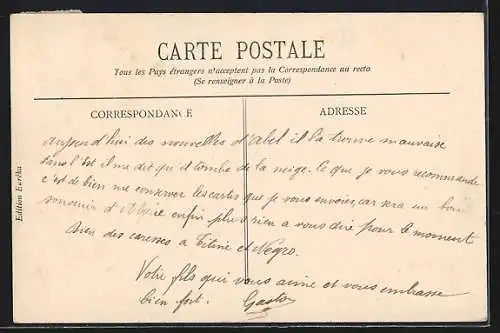 CARTE POSTALE
Tous les Pays étrangers n'acceptent pas la Correspondance au recto
(Se renseigner à la Poste)
CORRESPONDANCE
ADRESSE
Edition Eurêka
aujourd'hui des nouvelles d'abel il la trouve mauvaise
dans l'Est il me dit qu'il tombe de la neige. Ce que je vous recommande
c'est de bien me conserver les cartes que je vous envoie, car sera un bon
souvenir d'Algérie enfin plus rien a vous dire pour le moment
bien des caresses a Titine et Négro.
Votre fils qui vous aime et vous embrasse
bien fort. Gaston